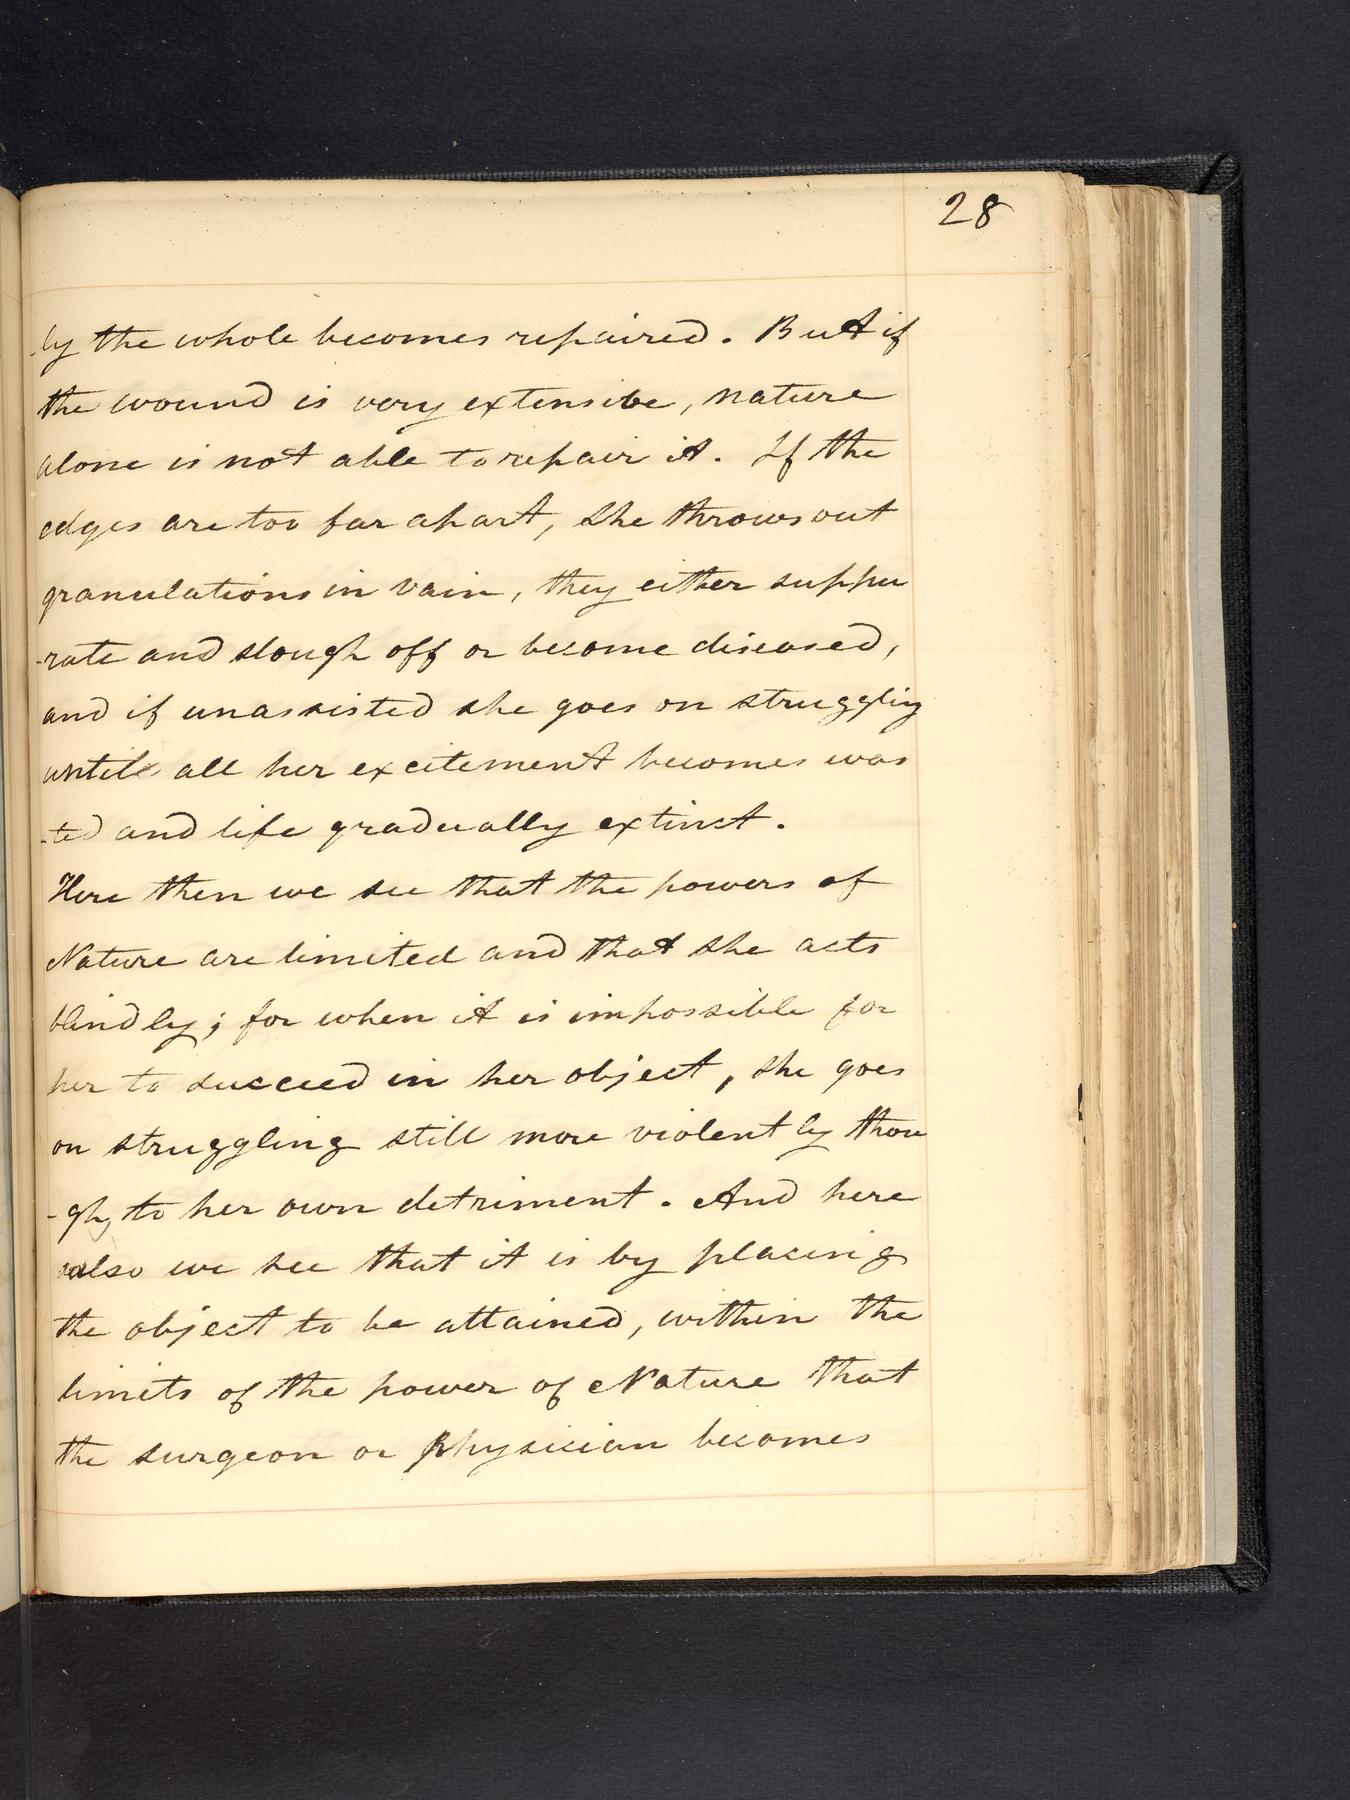 28
-ly the whole becomes repaired. But if
the wound is very extensive, nature
alone is not able to repair it. If the
edges are too far apart, she throws out
granulations in vain, they either suppu
-rate and slough off or become diseased,
and if unassisted she goes on struggling
until all her excitement becomes was
-ted and life gradually extinct.
Here then we see that the powers of
Nature are limited and that she acts
blindly; for when it is impossible for
her to succeed in her object, she goes
on struggling still more violently thou
-gh, to her own detriment. And here
also we see that it is by placing
the object to be attained, within the
limits of the power of Nature that
the surgeon or physician becomes